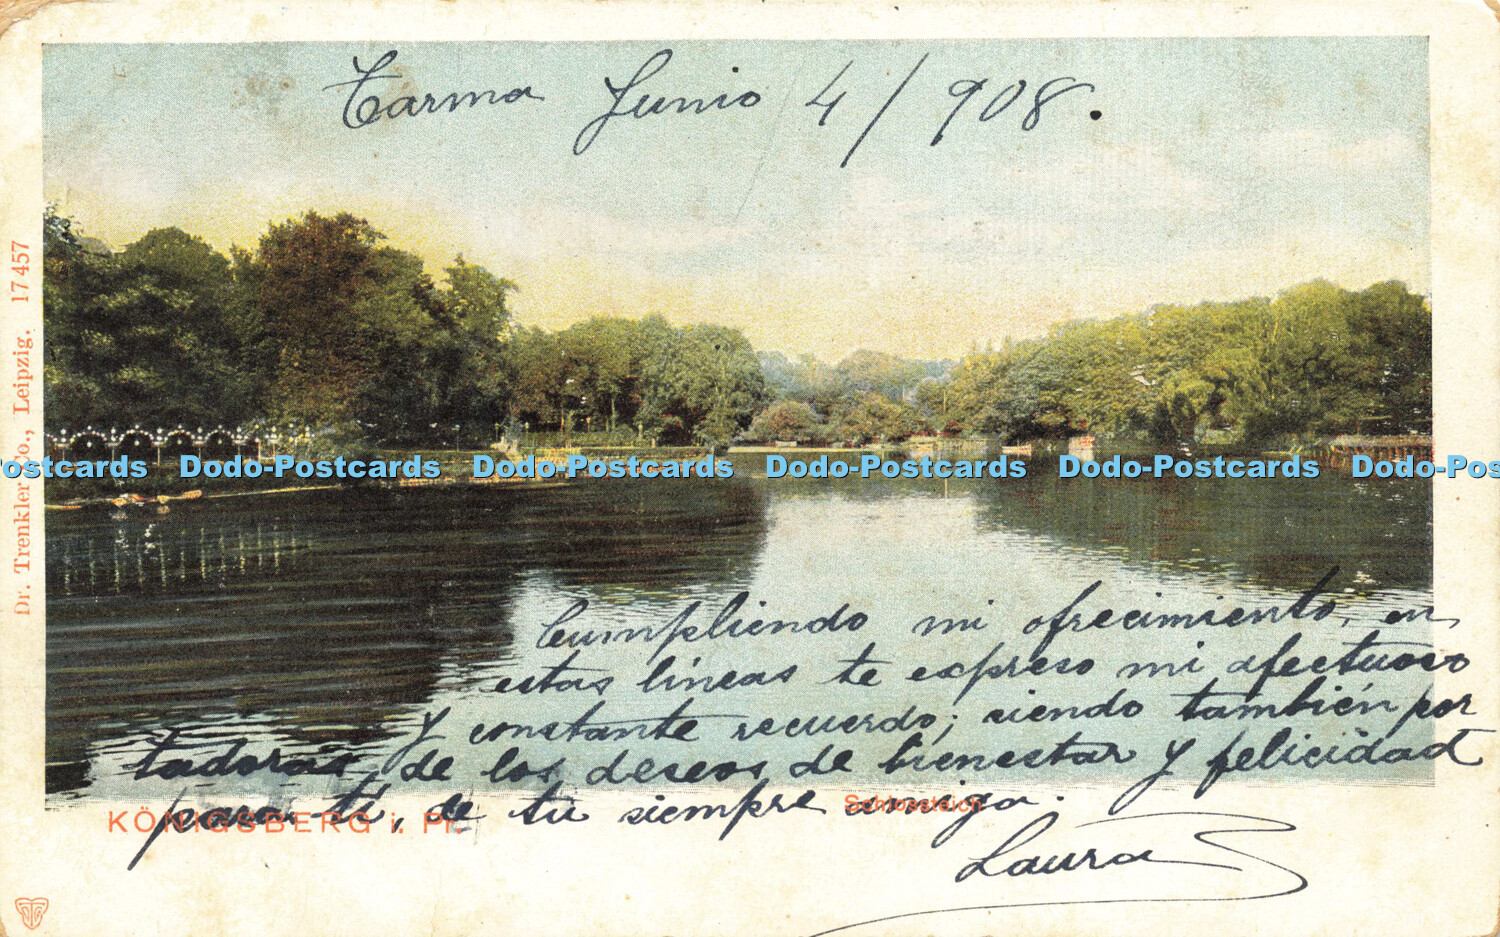 Tarma Junio 4/908.
Dr. Trenkler Co., Leipzig. 17 457
ostcards Dodo-Postcards Dodo-Postcards Dodo-Postcards Dodo-Postcards Dodo-Pos
Cumpliendo mi ofrecimiento, en
estas líneas te expreso mi afectuoso
y constante recuerdo; siendo también por
tadoras, de los deseos de bienestar y felicidad
para tí, de tu siempre amiga.
KÖNIGSBERG i. Pr.
Schlossteich
Laura